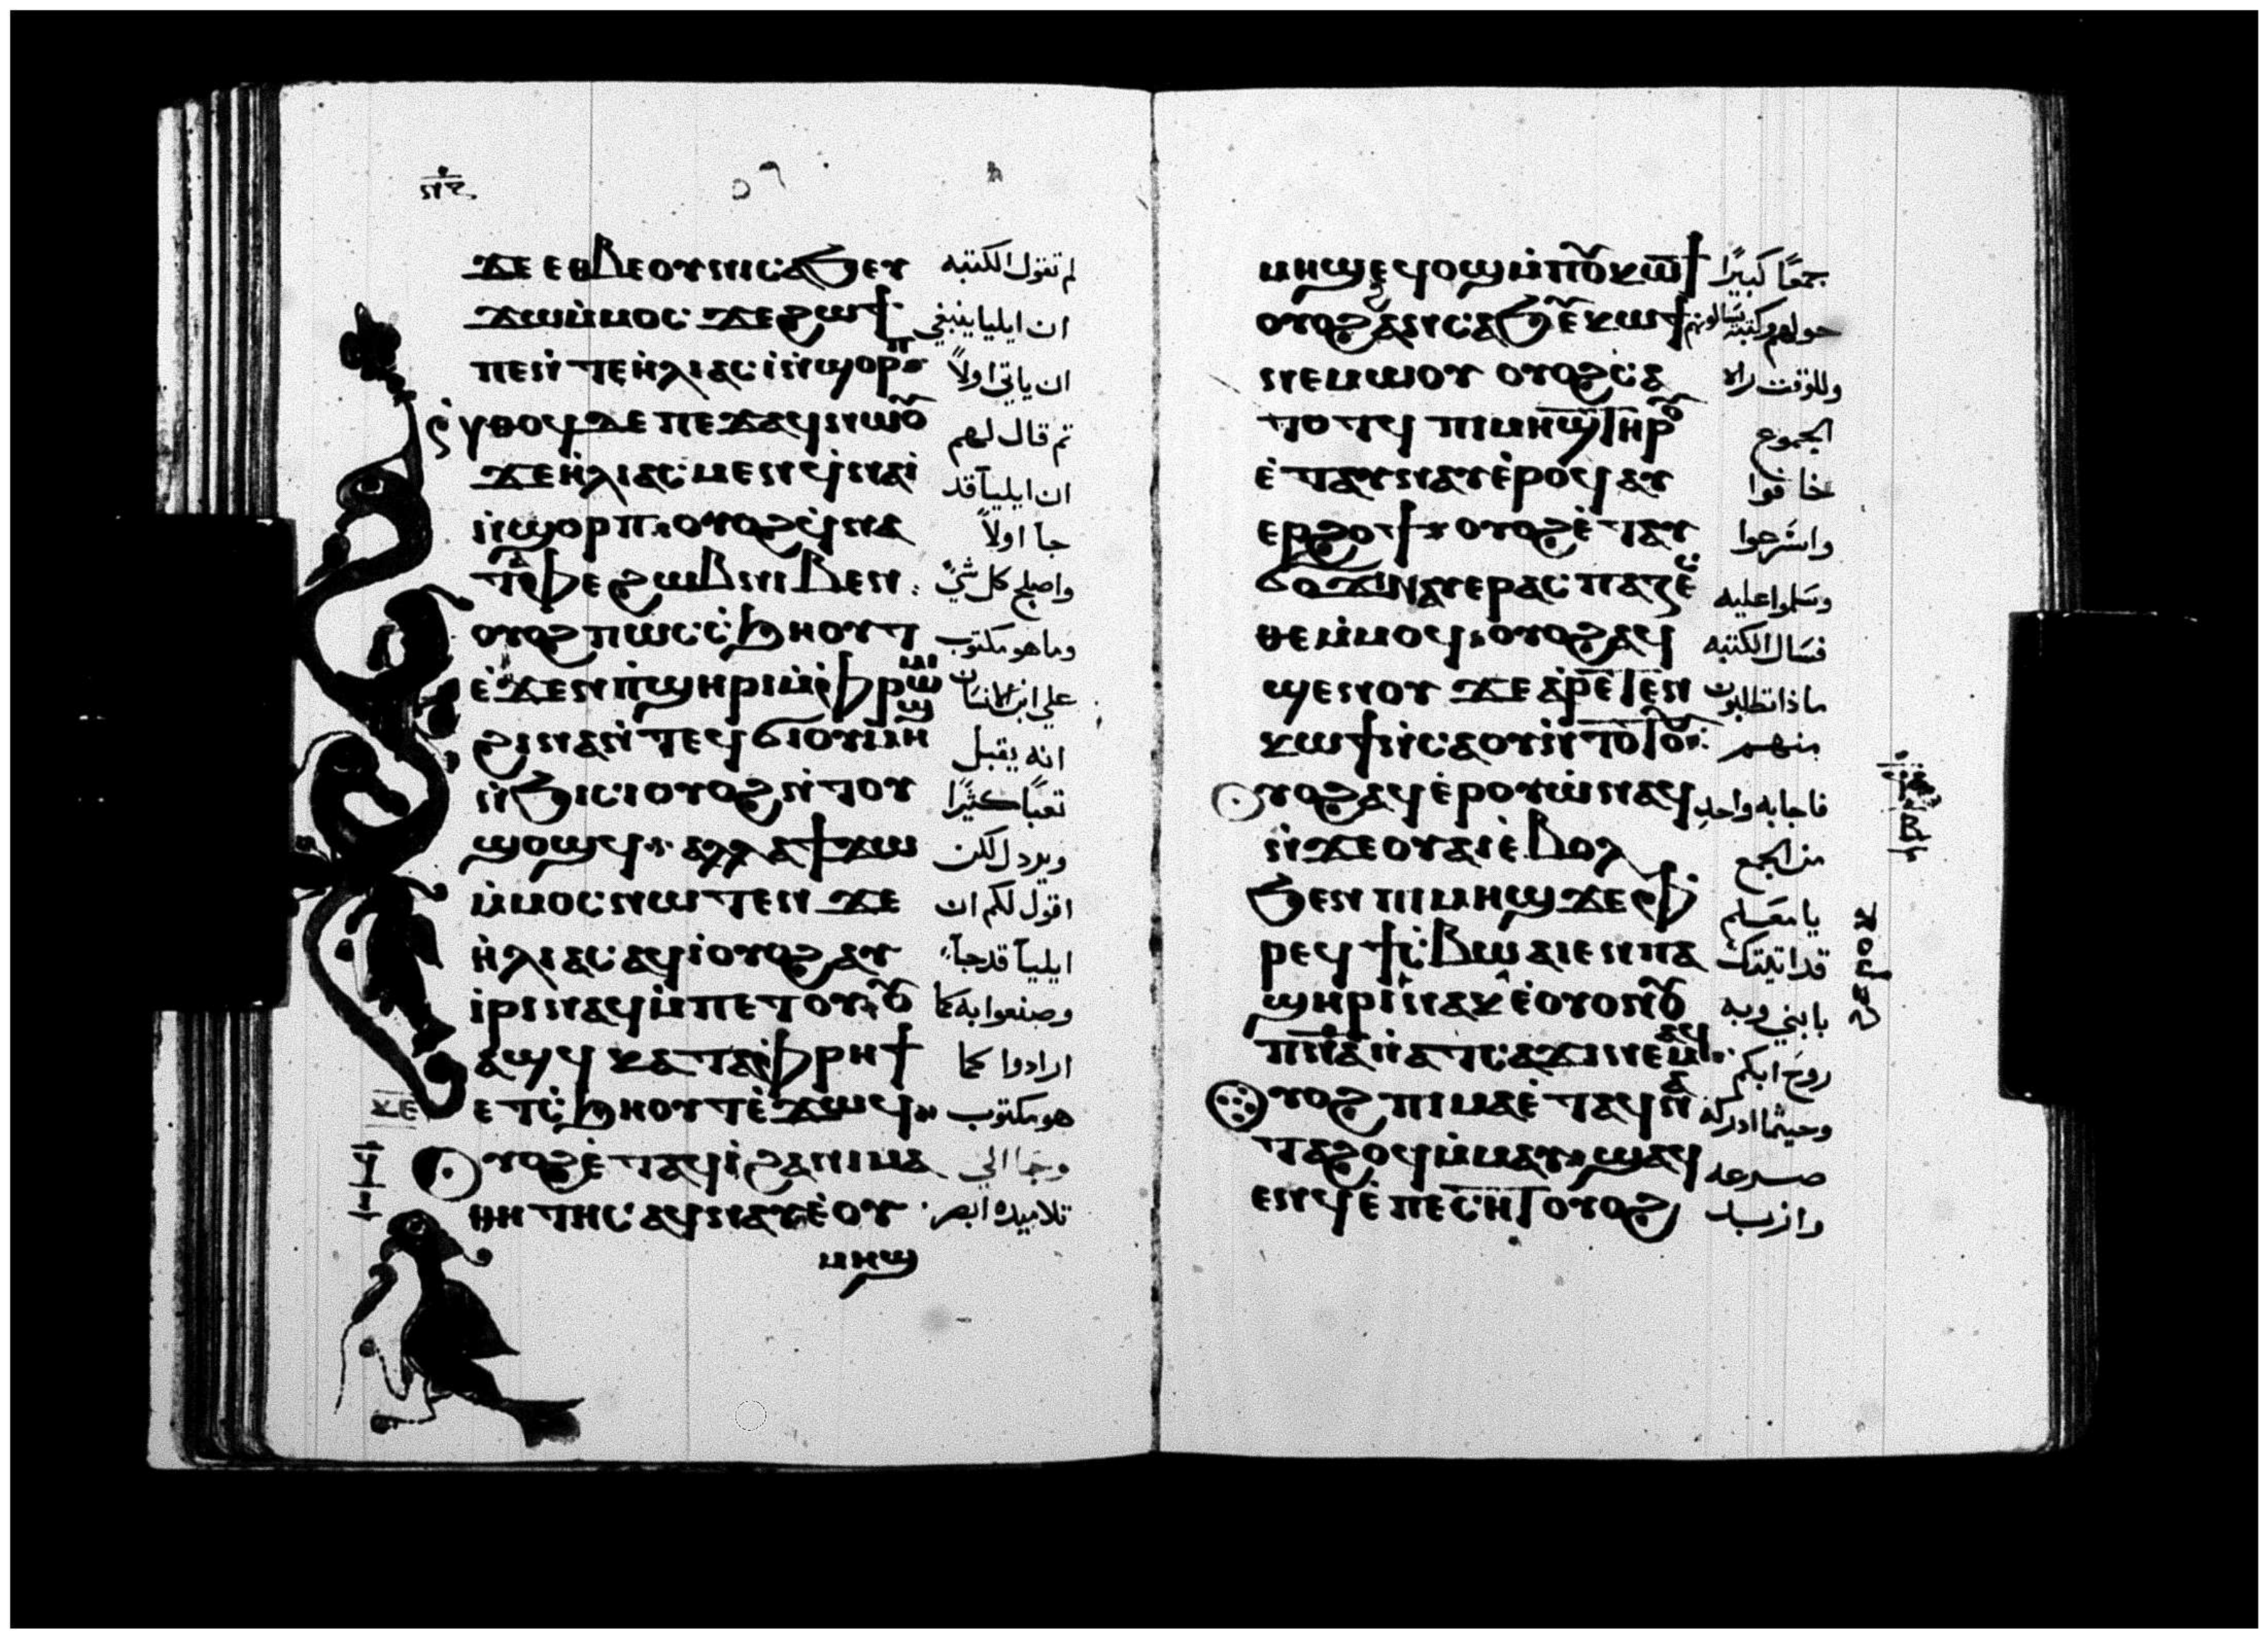 ϫⲉ ⲉⲑⲃⲉⲟⲩ ⲛⲓⲥⲁϧ ⲥⲉϫⲱ لم تقول الكتبه
ϫⲱ ⲙ̀ⲙⲟⲥ ϫⲉ ϩⲱϯ ان ايليا ينبغي
ⲡⲉ ⲛ̀ⲧⲉ ⲏ̀ⲗⲓⲁⲥ ⲓ̀ ⲛ̀ϣⲟⲣⲡ ان ياتي اولاً
ⲛⲑⲟϥ ⲇⲉ ⲡⲉϫⲁϥ ⲛⲱⲟⲩ تم قال لهم
ϫⲉ ⲏ̀ⲗⲓⲁⲥ ⲙⲉⲛ ϥ̀ⲛⲁⲓ̀ ان ايليا قد
ⲛ̀ϣⲟⲣⲡ ⲟⲩⲟϩ ϥ̀ⲛⲁ جا اولاً
ⲧⲁⲫⲉ ϩⲱⲃ ⲛⲓⲃⲉⲛ واصلح كل شي
ⲟⲩⲟϩ ⲡⲱⲥ ⲥ̀ϧⲏⲟⲩⲧ وما هو مكتوب
ⲉ̀ϫⲉⲛ ⲡ̀ϣⲏⲣⲓ ⲙ̀ⲫⲣⲱⲙⲓ علي ابن الانسان
ϩⲓⲛⲁ ⲛ̀ⲧⲉϥϭⲓ ⲟⲩⲙⲏϣ انه يقبل
ⲛ̀ϧⲓⲥⲓ ⲟⲩⲟϩ ⲛ̀ⲧⲟⲩ تعبًا كثيرًا
ϣⲟϣϥ ⲁⲗⲗⲁ ϯϫⲱ ويرذل لكن
ⲙ̀ⲙⲟⲥ ⲛⲱⲧⲉⲛ ϫⲉ اقول لكم ان
ⲏ̀ⲗⲓⲁⲥ ⲁϥⲓ̀ ⲟⲩⲟϩ ⲁⲩ ايليا قد جا
ⲓ̀ⲣⲓ ⲛⲁϥ ⲙ̀ⲡⲉⲧⲟⲩⲟ وصنعوا به كما
ⲁϣϥ ⲕⲁⲧⲁ ⲫⲣⲏϯ ارادوا كما
ⲉⲧⲥ̀ϧⲏⲟⲩⲧ ⲉ̀ϫⲱϥ هو مكتوب
ⲟⲩⲟϩ ⲉ̀ⲧⲁϥⲓ̀ ϩⲁ ⲛⲓⲙⲁ وجا الي
ⲑⲏⲧⲏⲥ ⲁϥⲛⲁⲩ ⲉ̀ⲟⲩ تلاميذه ابصر
ⲙⲏϣ
ⲙⲏϣ ⲉϥⲟϣ ⲙ̀ⲡⲟⲩⲕⲱϯ جمعًا كبيرًا
ⲟⲩⲟϩ ϩⲁⲛⲥⲁϧ ⲉⲩⲕⲱϯ حولهم وكتبه يسالونهم
ⲛⲉⲙⲱⲟⲩ ⲟⲩⲟϩ ⲥⲁ وللوقت راه
ⲧⲟⲧϥ ⲡⲓⲙⲏϣ ⲧⲏⲣϥ الجموع
ⲉ̀ⲧⲁⲩⲛⲁⲩ ⲉ̀ⲣⲟϥ ⲁⲩ خافوا
ⲉⲣϩⲟϯ ⲟⲩⲟϩ ⲉ̀ⲧⲁⲩ واسرعوا
ϭⲟϫⲓ ⲛⲁⲩⲉⲣⲁⲥⲡⲁⲍⲉ وسلموا عليه
ⲑⲉ ⲙ̀ⲙⲟϥ ⲟⲩⲟϩ ⲁϥ فسال الكتبه
ϣⲉⲛⲟⲩ ϫⲉ ⲁ̀ⲣⲉⲧⲉⲛ ماذا تطلبون
ⲕⲱϯ ⲛ̀ⲥⲁ ⲟⲩ ⲛ̀ⲧⲟⲧⲟⲩ منهم
ⲟⲩⲟϩ ⲁϥⲉ̀ⲣⲟⲩⲱ̀ ⲛⲁϥ فاجابه واحد
ⲛ̀ϫⲉ ⲟⲩⲁⲓ ⲉ̀ⲃⲟⲗ من الجمع
ϧⲉⲛ ⲡⲓⲙⲏϣ ϫⲉ ⲫ يا معلم
ⲣⲉϥϯⲥ̀ⲃⲱ ⲁⲓⲉⲛ ⲡⲁ قد اتيتك
ϣⲏⲣⲓ ⲛⲁⲕ ⲉ̀ⲟⲩⲟⲛ ⲟⲩ بابني وبه
ⲡⲛⲁ ⲛ̀ⲁⲧⲥⲁϫⲓ ⲛⲉⲙⲁϥ روح ابكم
ⲟⲩⲟϩ ⲡⲓⲙⲁ ⲉ̀ⲧⲁϥⲛⲁ وحيثما ادركه
ⲧⲁϩⲟϥ ⲙ̀ⲙⲁⲩ ϣⲁϥ صرعه
ⲉⲛϥ ⲉ̀ⲡⲉⲥⲏⲧ ⲟⲩⲟϩ وازبد